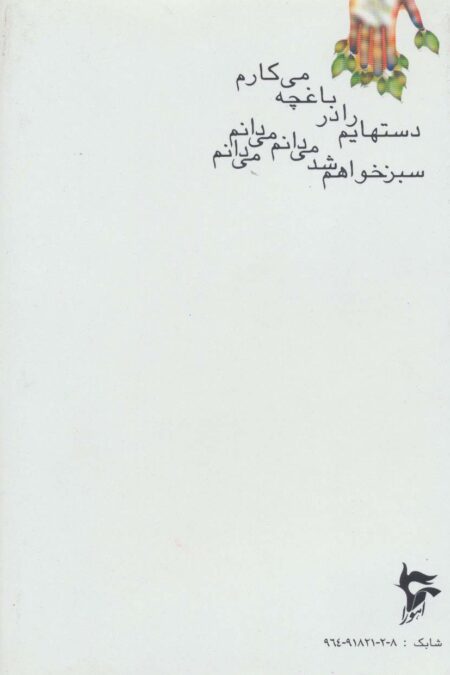 دستهایم را در باغچه می‌کارم
سبز خواهم شد می‌دانم می‌دانم می‌دانم
اهورا
شابک : ۸-۲-۹۱۸۲۱-۹۶۴